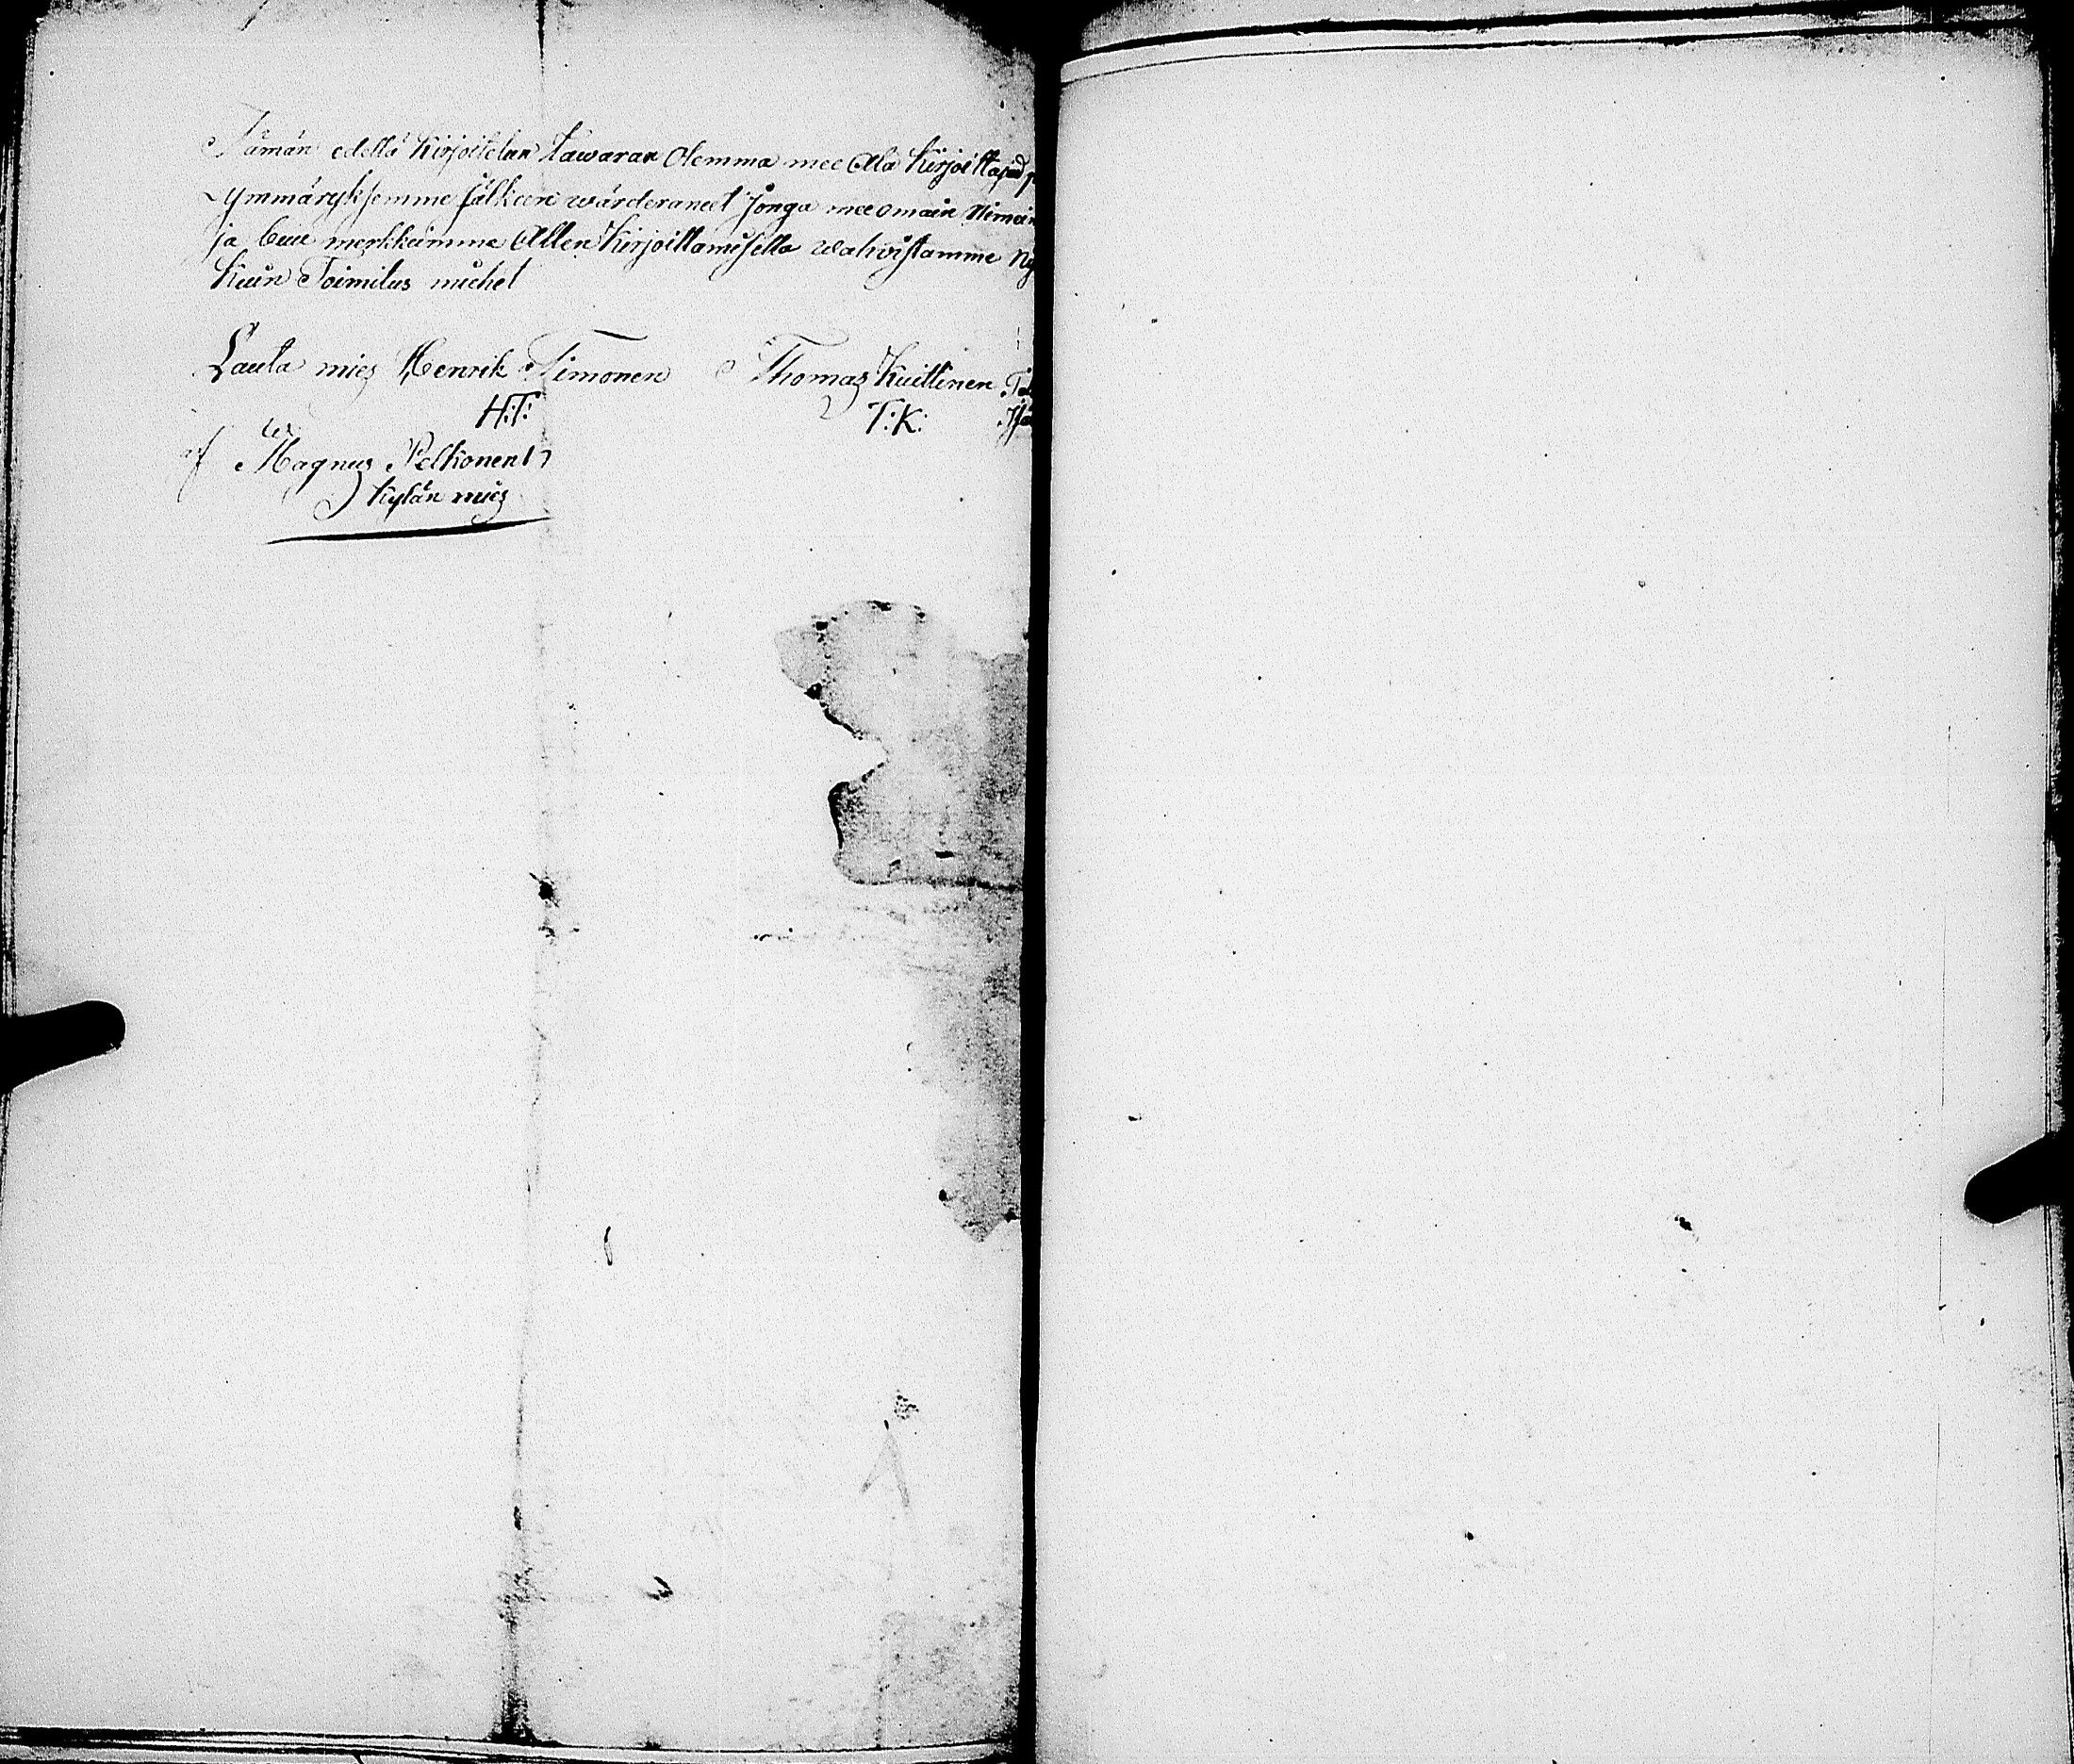 Tämän edellä Kirjoitetun tawaran Olemma mee Ala Kirjoittajad
Ymmäryksemme jälkeen wärderaneet Jonga mee omain Nimein
ja buu merkkeimme Allen Kirjoittamisella wahwistamme
Kuin Toimitus miehet
Lauta mies Henrik Timonen Thomas Kuittinen
H:T: T:K:
af Magnus Pelkonen
Kylän mies